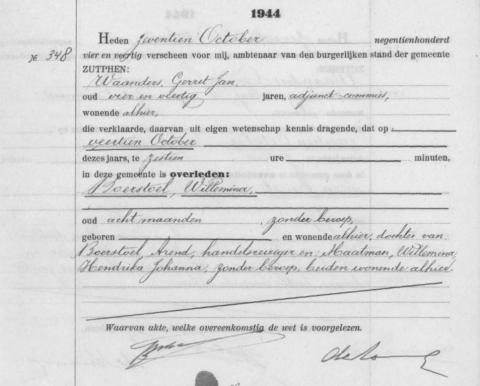 1944
Heden zeventien October negentienhonderd
№ 348
vier en veertig verscheen voor mij, ambtenaar van den burgerlijken stand der gemeente
ZUTPHEN:
Waanders, Gerret Jan,
oud vier en veertig jaren, adjunct-commies,
wonende alhier,
die verklaarde, daarvan uit eigen wetenschap kennis dragende, dat op
veertien October
dezes jaars, te zestien ure minuten,
in deze gemeente is overleden:
Boerstoel, Willemina,
oud acht maanden, zonder beroep,
geboren en wonende alhier, dochter van
Boerstoel, Arend, handelsreiziger en Maatman, Willemina
Hendrika Johanna, zonder beroep, beiden wonende alhier.
Waarvan akte, welke overeenkomstig de wet is voorgelezen.